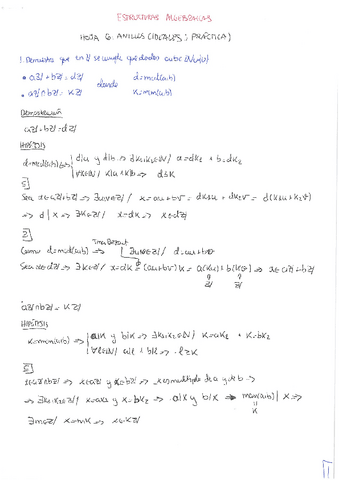 ESTRUCTURAS ALGEBRAICAS
HOJA 6: ANILLOS (IDEALES; PRÁCTICA)
1. Demuestra que en ℤ se cumple que dados a,b∈ℕ\{0}
• aℤ+bℤ=dℤ donde d=mcd(a,b)
• aℤ∩bℤ=kℤ k=mcm(a,b)
Demostración
aℤ+bℤ=dℤ
Hipótesis
d=mcd(a,b) ⇔ d|a y d|b ⇒ ∃k₁,k₂∈ℕ/ a=dk₁ + b=dk₂
⊆
Sea x∈aℤ+bℤ ⇒ ∃u,v∈ℤ/ x=au+bv = dk₁u + dk₂v = d(k₁u+k₂v)
⇒ d|x ⇒ ∃k∈ℤ/ x=dk ⇒ x∈dℤ
⊇
Tma Bezout
Como d=mcd(a,b) ⇒ ∃u,v∈ℤ/ d=au+bv
Sea x∈dℤ ⇒ ∃k∈ℤ/ x=dk = (au+bv)k = a(ku)+b(kv) ⇒ x∈aℤ+bℤ
ℤ ℤ
aℤ∩bℤ=kℤ
Hipótesis
k=mcm(a,b) ⇒ a|k y b|k ⇒ ∃k₁,k₂∈ℕ/ k=ak₁ + k=bk₂
⊆
x∈aℤ∩bℤ ⇒ x∈aℤ y x∈bℤ ⇒ x es múltiplo de a y de b ⇒
⇒ ∃k₁,k₂∈ℤ/ x=ak₁ y x=bk₂ ⇒ a|x y b|x ⇒ mcm(a,b)|x ⇒
k
∃m∈ℤ/ x=mk ⇒ x∈kℤ